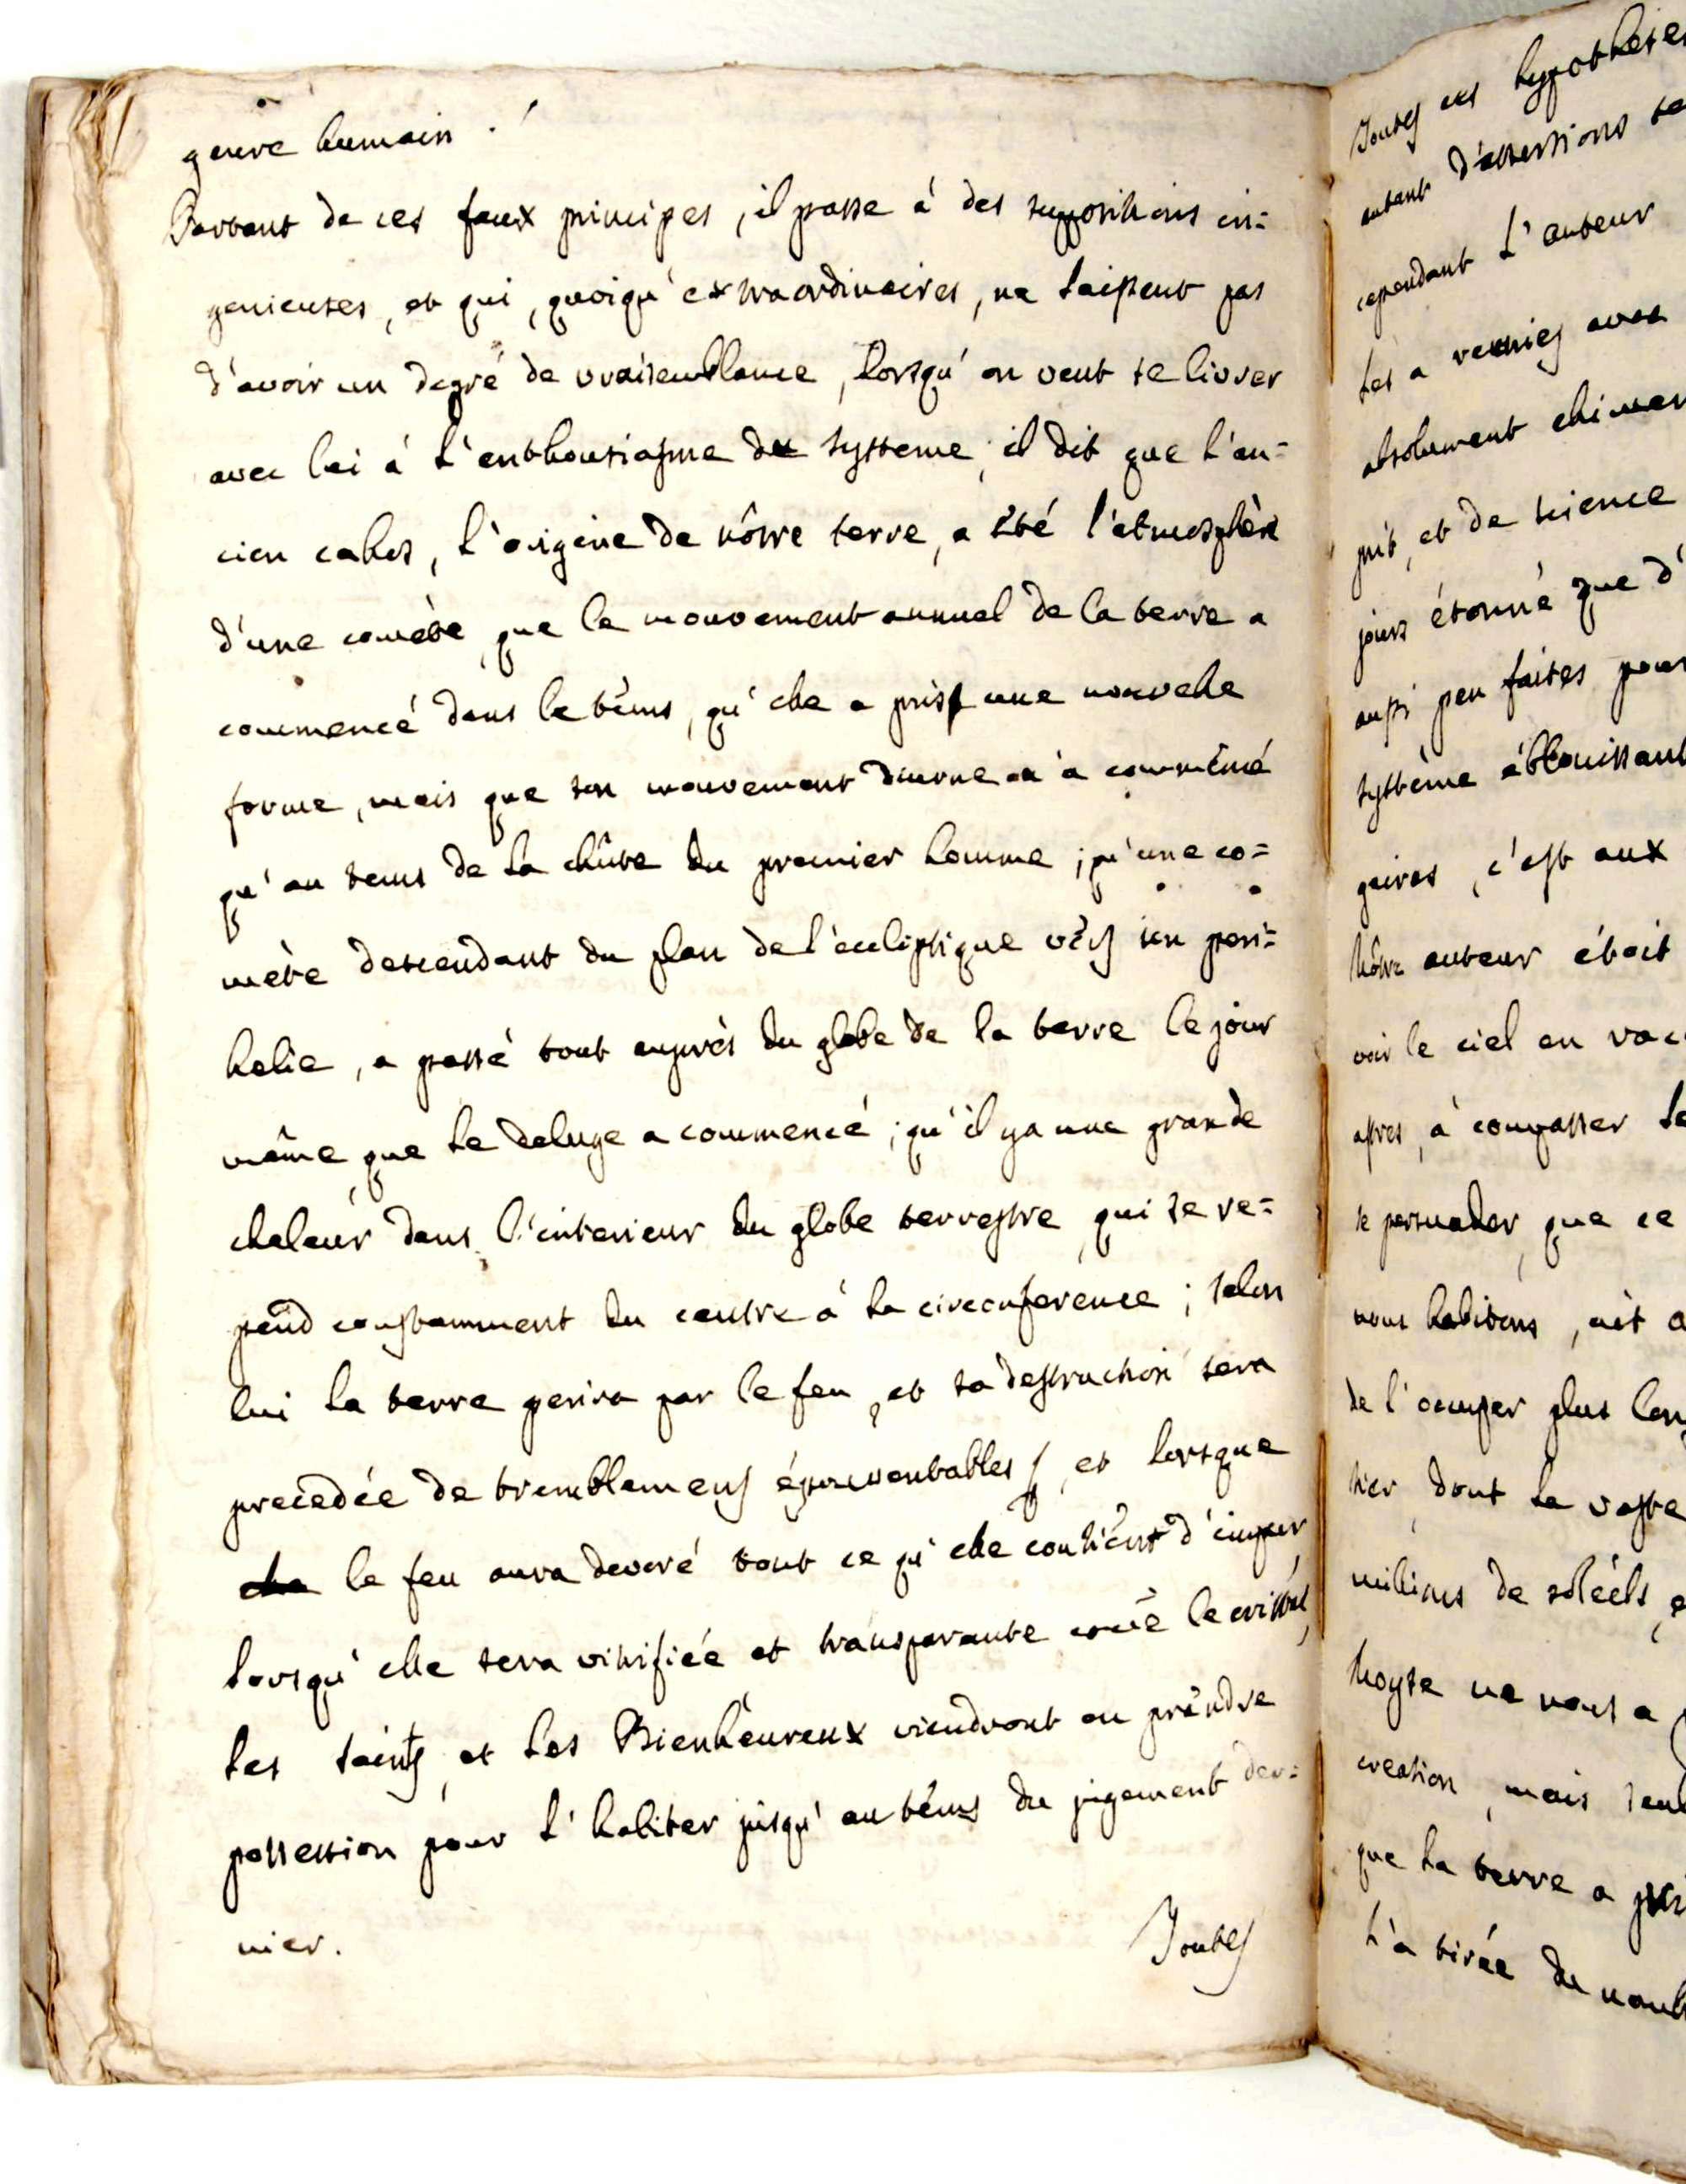 genre humain.
Partant de ces faux principes, il passe à des suppositions in=
genieuses, et qui, quoiqu'extraordinaires, ne laissent pas
d'avoir un degré de vraisemblance, lorsqu'on veut se livrer
avec lui à l'enthousiasme de systeme, il dit que l'an=
cien cahos, l'origine de nôtre terre, a été l'atmosphère
d'une comète, que le mouvement annuel de la terre a
commencé dans le tems, qu'elle a pris une nouvelle
forme, mais que son mouvement diurne n'a commēncé
qu'au tems de la chûte du premier homme; qu'une co=
mète descendant du plan de l'eccliptique vers son peri=
helie, a passé tout auprès du globe de la terre le jour
même, que le deluge a commencé; qu'il y a une grande
chaleur dans l'interieur du globe terrestre, qui se re=
pend constamment du centre à la circonference; selon
lui la terre perira par le feu, et sa destruction sera
precedée de tremblemens épouventables, et lorsque
le feu aura devoré tout ce qu'elle contient d'impur,
lorsqu'elle sera vitrifiée et transparante come le cristal,
les saints, et les Bienheureux viendront en prendre
possession pour l'habiter jusqu'au tems du jugement der=
nier.
Toutes
Toutes ces hypotheses
autant d'assertions te
cependant l'auteur
les a reunies avec
absolument chimer
prit, et de science
jours étonné que d'
aussi peu faites pour
système éblouissant
gaires, c'est aux
Nôtre auteur étoit
voir le ciel en vac
astres, à compasser le
se persuader, que ce
nous habitons, ait a
de l'occuper plus lon
tier, dont la vaste
millions de soléels, e
Moyse ne nous a
creation, mais seul
que la terre a pri
l'a tirée du